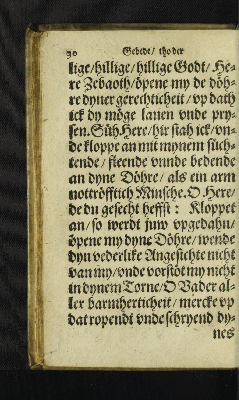 20 Gebede / tho der
lige / hillige / hillige Godt / He-
re Zebaoth / öpene my de döh-
re dyner gerechticheit / vp dath
ick dy möge lauen vnde pry-
sen. Süh Here / hir stah ick / vn-
de kloppe an mit mynem süch-
tende / fleende vnnde bedende
an dyne Döhre / als ein arm
nottröfftich Minsche. O Here /
de du gesecht heffst : Kloppet
an / so werdt juw vpgedahn /
öpene my dyne Döhre / wende
dyn vederlike Angesichte nicht
van my / vnde vorstöt my nicht
in dynem Torne / O Vader al-
ler barmherticheit / mercke vp
dat ropendt vnde schryend dy-
nes